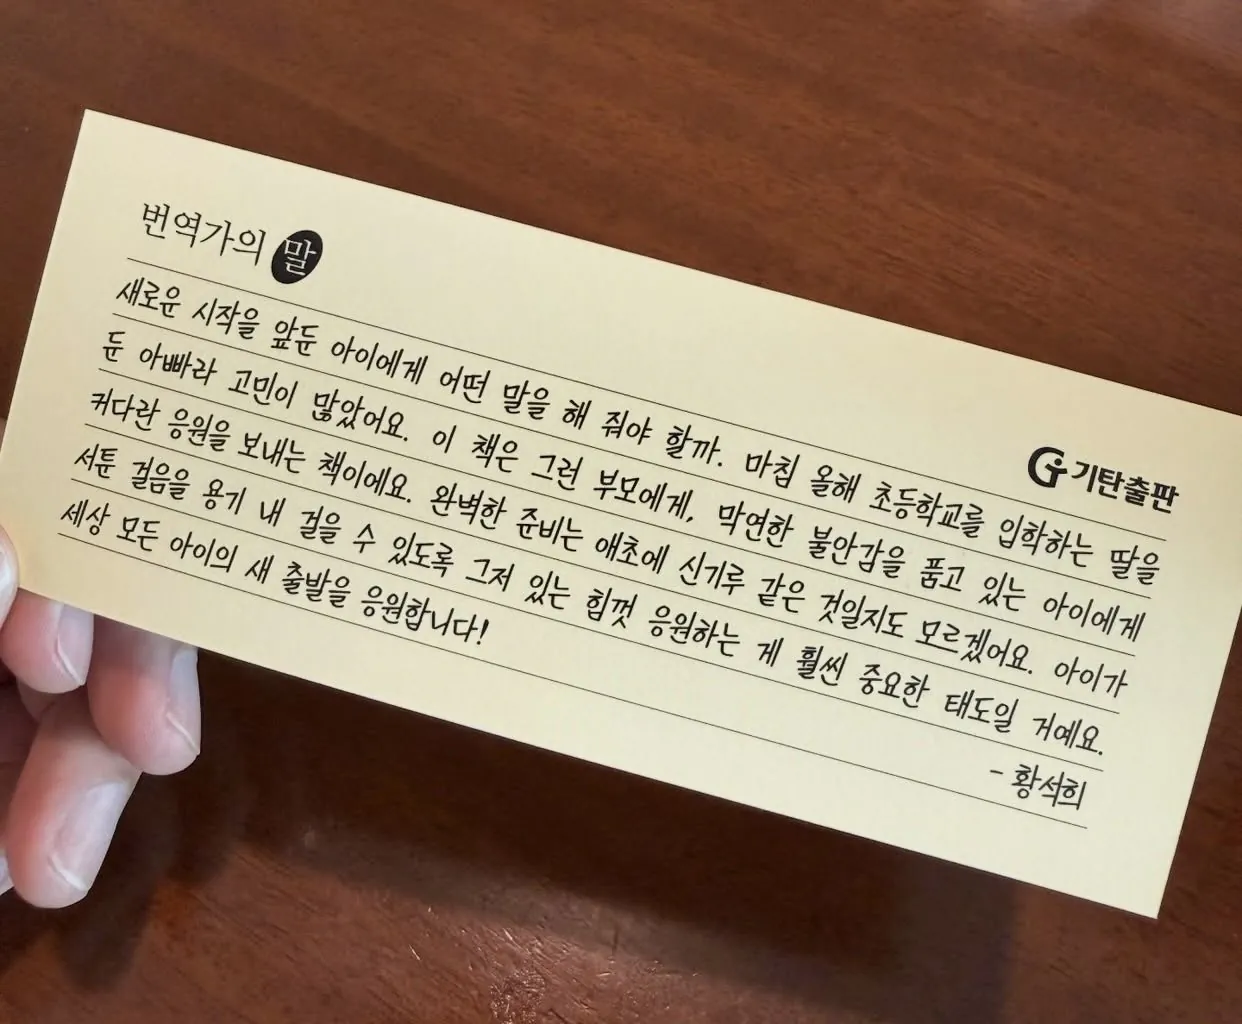 번역가의 말
기탄출판
새로운 시작을 앞둔 아이에게 어떤 말을 해 줘야 할까. 마침 올해 초등학교를 입학하는 딸을
둔 아빠라 고민이 많았어요. 이 책은 그런 부모에게, 막연한 불안감을 품고 있는 아이에게
커다란 응원을 보내는 책이에요. 완벽한 준비는 애초에 신기루 같은 것일지도 모르겠어요. 아이가
서툰 걸음을 용기 내 걸을 수 있도록 그저 있는 힘껏 응원하는 게 훨씬 중요한 태도일 거예요.
세상 모든 아이의 새 출발을 응원합니다!
- 황석희